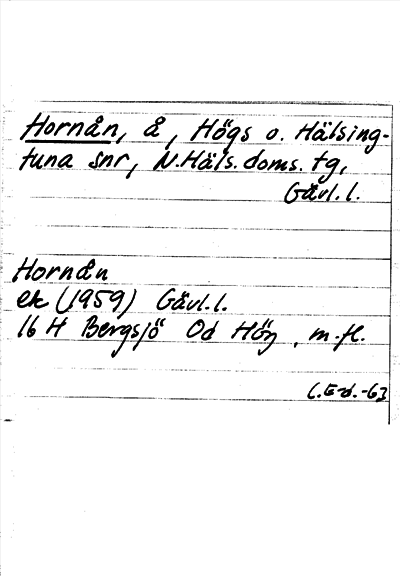 Hornån, å, Högs o. Hälsing-
tuna snr, N.Häls. doms. tg,
Gävl. l.
Hornån
ek (1959) Gävl. l.
16 H Bergsjö Od Hög, m.fl.
C.E-d.-63